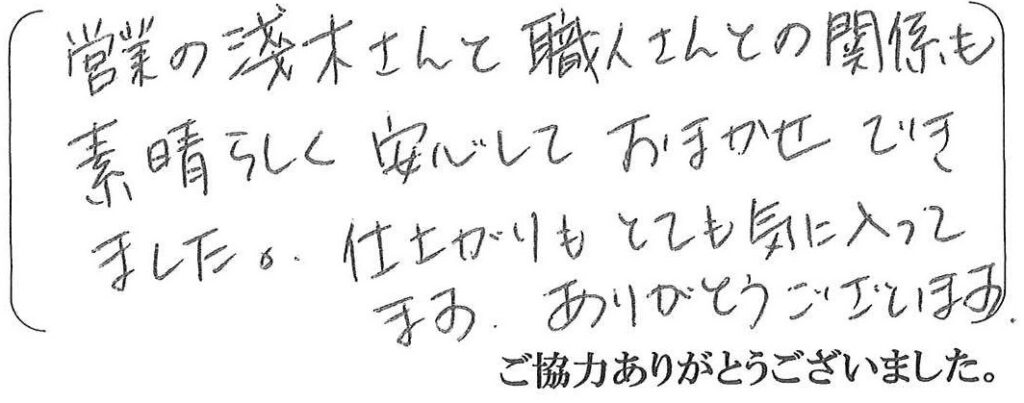 営業の淺木さんと職人さんとの関係も
素晴らしく安心しておまかせでき
ました。仕上がりもとても気に入って
ます。ありがとうございます。
ご協力ありがとうございました。